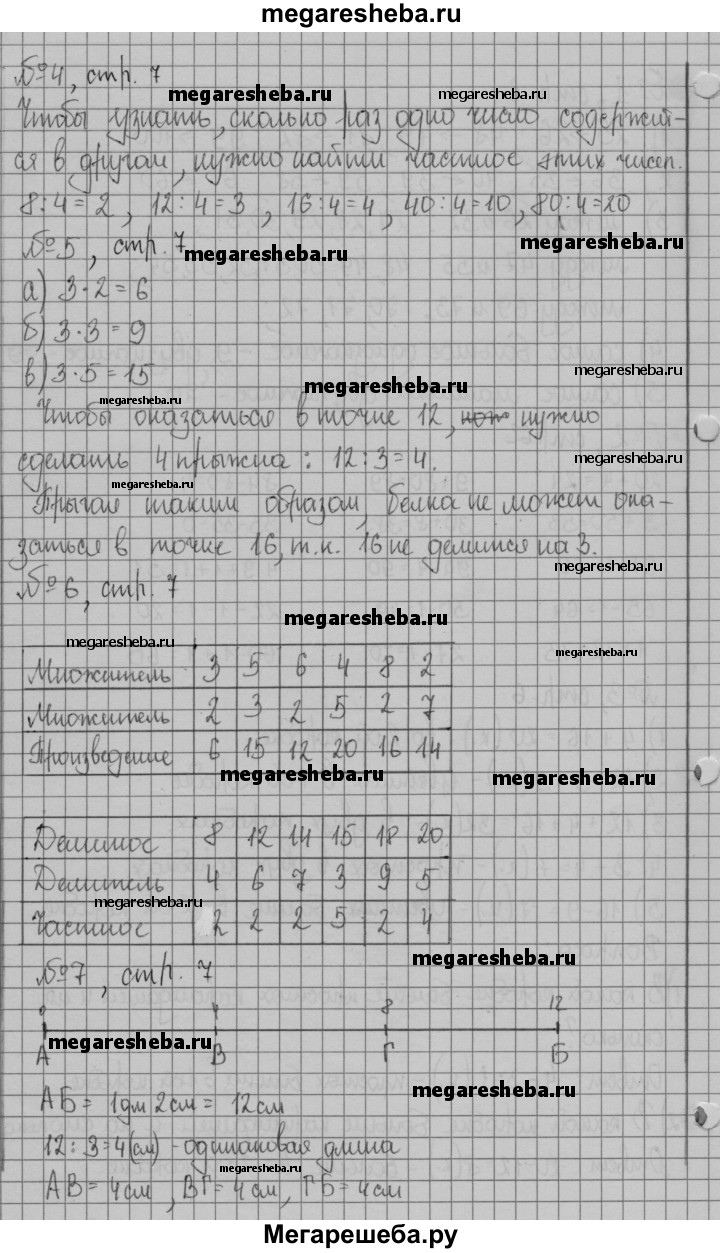 megaresheba.ru
№4, стр. 7
megaresheba.ru megaresheba.ru
Чтобы узнать, сколько раз одно число содержит-
ся в другом, нужно найти частное этих чисел.
8:4=2, 12:4=3, 16:4=4, 40:4=10, 80:4=20
№5, стр. 7
megaresheba.ru megaresheba.ru
а) 3·2=6
б) 3·3=9
в) 3·5=15
megaresheba.ru
megaresheba.ru megaresheba.ru
Чтобы оказаться в точке 12, нужно
сделать 4 прыжка: 12:3=4.
megaresheba.ru
megaresheba.ru
Прыгая таким образом, белка не может ока-
заться в точке 16, т.к. 16 не делится на 3.
megaresheba.ru
№6, стр. 7
megaresheba.ru
megaresheba.ru megaresheba.ru
Множитель 3 5 6 4 8 2
Множитель 2 3 2 5 2 7
Произведение 6 15 12 20 16 14
megaresheba.ru megaresheba.ru
Делимое 8 12 14 15 18 20
Делитель 4 6 7 3 9 5
megaresheba.ru
Частное 2 2 2 5 2 4
megaresheba.ru
№7, стр. 7
0 4 8 12
megaresheba.ru
А В Г Б
megaresheba.ru
АБ = 1дм 2см = 12см
12:3=4(см) - одинаковая длина
megaresheba.ru
АВ = 4см, ВГ = 4см, ГБ = 4см
Мегарешеба.ру